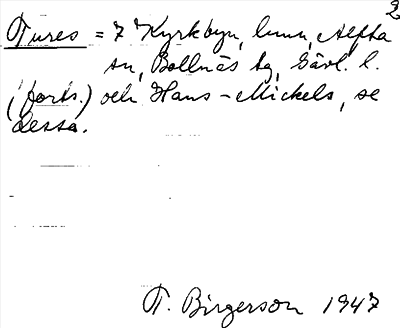 2
Tures = 7 Kyrkbyn, hmn, Alfta
sn, Bollnäs tg, Gävl. l.
(forts.) och Hans-Mickels, se
dessa.
T. Birgerson 1947